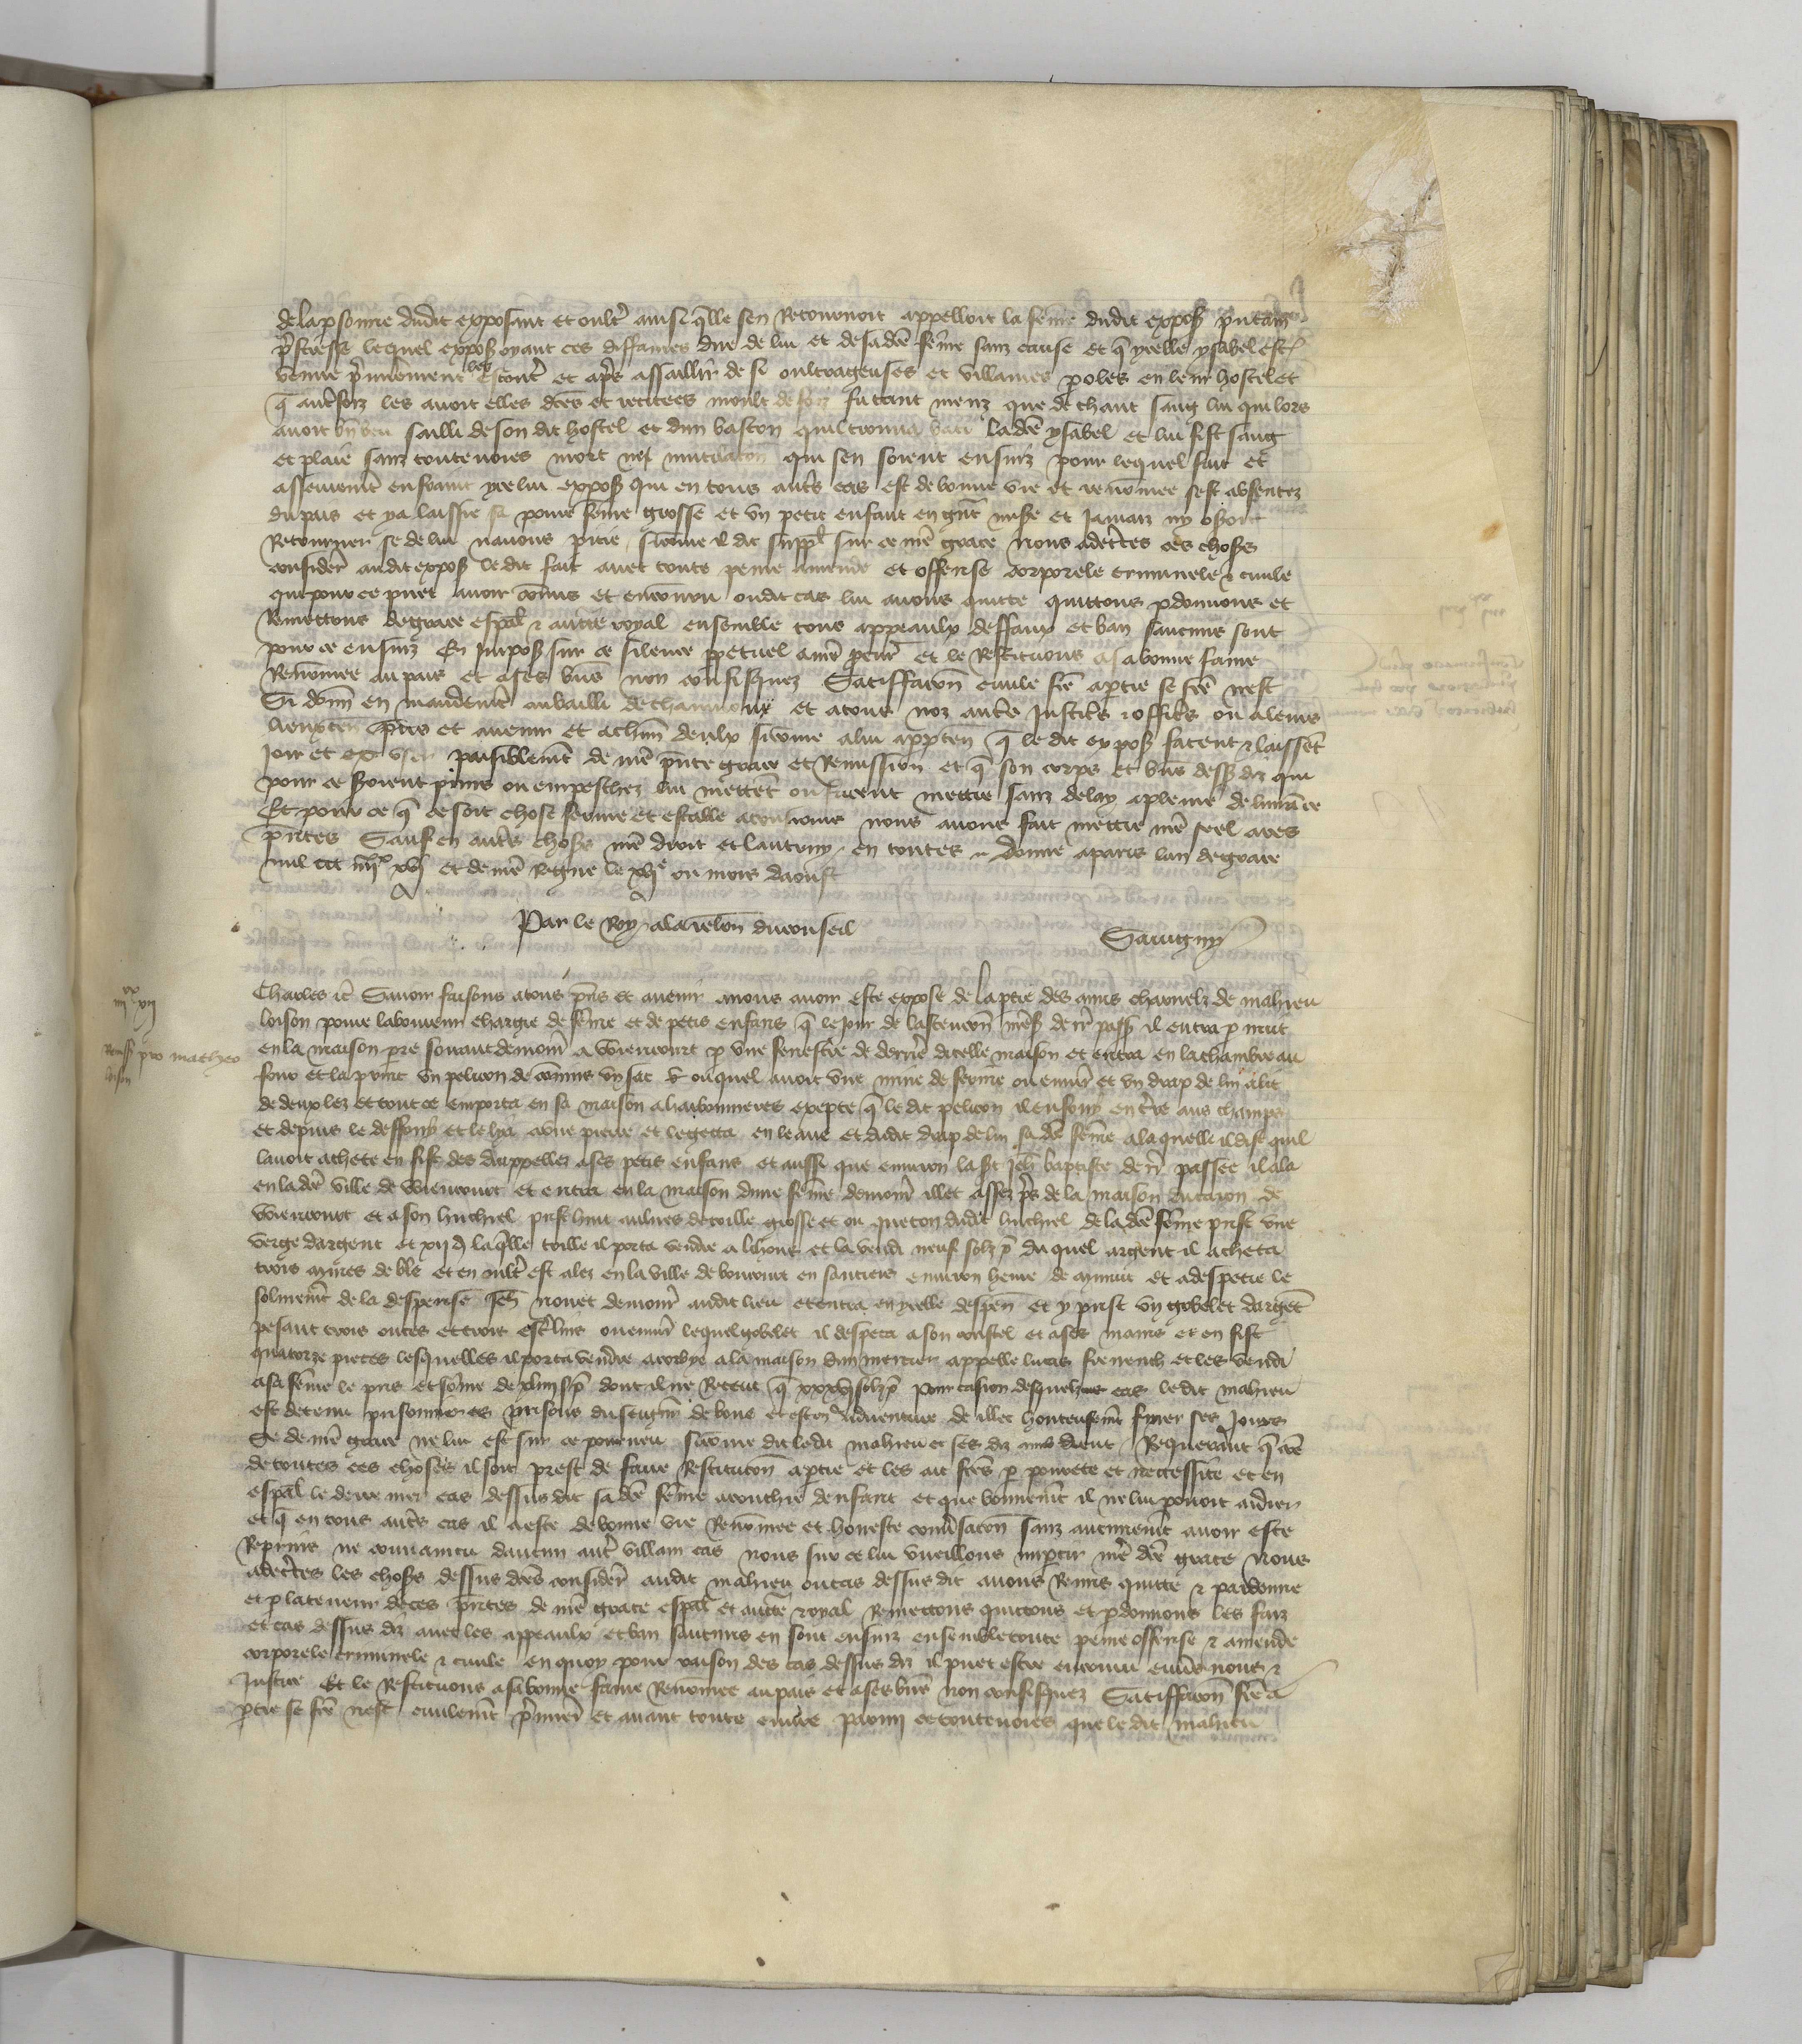 de la psonne dudit exposant et oultr ainsi qlle sen Retournoit appelloit la feme dudit expos putain
prstresse lequel expos oyant ces diffames dire de lui et de sa de feme sanz cause et q ycelle ysabel est
venue prmierement les Escoutr et aprs assaillir de si oultrageuses et villaines paroles en leur hostel et
q autrfoiz les avoit elles dces et recitees moult de foiz fu tant menz que de chaut sang lui qui lors
avoit bn beu sailli de son dit hostel et dun baston quil trouva bati la de ysabel et lui fist sang
et plaie sanz toutevoies mort ne mutilacon qui sen soient ensuiz pour lequel fait et
asseurement enfraint yce lui expos qui en tous autrs cas est de bonne vie et renomee sest absentez
du pais et y a laissie sa povre feme grosse et un petit enfant en gnt mise et Jamaiz ny oseroit
Retourner se de lui navons pitie sicome il dit suppl sur ce nre grace Nous adcertes ces choses
considere audit expos le dit fait avec toute peine amende et offense corporele criminele et civile
qui pour ce puet avoir comis et encouru oudit cas lui avons quitte quittons pdonnons et
Remettons de grace espal et auctite royal ensemble tous appeaulx deffaux et ban saucuns sont
pour ce ensuiz En Impos sur ce silence ppetuel a nre procur et le Restituons a sa bonne fame
Renomee au pais et a ses biens non confisquez Satiffacon civile fce a ptie se fce nest
Si donn en mandemt au bailli de chaumont et a tous noz autrs Justicrs et officrs ou a leurs
lieuxten prns et avenir et a chun deulx sicome a lui apptien q le dit expos facent et laissent
Joir et user paisiblemt de nre pnte grace et Remission et q son corps et biens dess diz qui
pour ce seroient prins ou empeschez lui mettet ou facent mettre sanz delay a pleine delivrace
Et pour ce q ce soit chose ferme et estable a tousjours nous avons fait mettre nre seel a ces
prites Sauf en autrs choses nre droit et lautruy en toutes Donne a paris lan de grace
mil ccc iiijxx xvj et de nre Regne le xvje ou mois daoust
Par le Roy a la relon du conseil Sauvigny
iiijxx xvij
Remiss pro matheo
loison
Charles et Savoir faisons a tous prns et avenir a nous avoir este expose de la ptie des amis charnelz de mahieu
loison povre laboureur chargie de feme et de petis enfans q le jour de lascencon ness dernr pass il entra p nuit
en la maison demour a wiencourt p une fenestre de derrie dicelle maison et entra en la chambre au
four et la print un pelicon de connins un sac ouquel avoit une mine de ferine ou envir et un drap de lin a lit
de deux lez et tout ce emporta en sa maison a harbonnieres excepte q le dit pelicon il enfouy en tre aus champs
et depuis le deffouy et le lya a une pierre et le getta en leaue et dudit drap de lin sa de feme a laquelle il dist quil
lavoit achete en fist des drappelles a ses petis enfans et aussi que environ la st Jeh baptiste dernr passee il ala
en lade ville de wiencourt et entra en la maison dune feme demour illec assez prs de la maison du caron de
wiencourt et a son huchel prist huit aulnes de toille grosse et ou queton dudit huchiel de lade feme prist une
verge dargent et xij d laqlle toille il porta vendre a lihons et la vendi neuf solz p du quel argent il acheta
trois mines de ble et en oultr est alez en la ville de boucourt en santers environ heure de mynuit et a despecie le
solinemt de la despense Jeh novet demour audit lieu et entra en ycelle despen et y prist un gobelet dargent
pesant trois onces et trois estrlins ou envir lequel gobelet il despeca a son coustel et a ses mains et en fist
quatorze pieces lesquelles il porta vendre a corbye a la maison dun mercier appelle lucas et les vendi
a sa feme le pris et some de xliiij s p dont il ne Receut q xxxvj solz p Pour cason desquelz cas le dit mahieu
est detenu prisonnier es prisons du seignr de bove et est en adventure de illec honteusemt finer ses Jours
Se de nre grace ne lui est sur ce pourveu sicome dit ledit mahieu et ses diz amis dient Requerant q come
de toutes ces choses il soit prest de faire Restitucon a ptie et les ait fces p povrete et necessite et en
espal le derre nier cas dessus dit sa de feme acouchie denfant et que bonnemt il ne lui povoit aidier
et q en tous autrs cas il a este de bonne vie Renomee et honeste conversacon sanz aucunemt avoir este
Reprins ne convaincu daucun autr villain cas nous sur ce lui vueillons impartir nre dce grace Nous
adcertes les choses dessus dces considere audit mahieu ou cas dessus dit avons Remis quitte et pardonne
et p la teneur de ces prites de nre grace espal et aucte royal Remettons quittons et pdonnons les faiz
et cas dessus diz avec les appeaulx et ban saucuns en sont ensuiz ensemble toute peine offense et amende
corporele criminele et civile en quoy pour raison des cas dessus diz il puet estre encouru envrs nous et
Justice Et le Restituons a sa bonne fame Renomee au pais et a ses biens non confisquez Satiffacon fce a
ptie se fce nest civilemt prmier et avant toute euvre parmy ce toutevoies que le dit mahieu